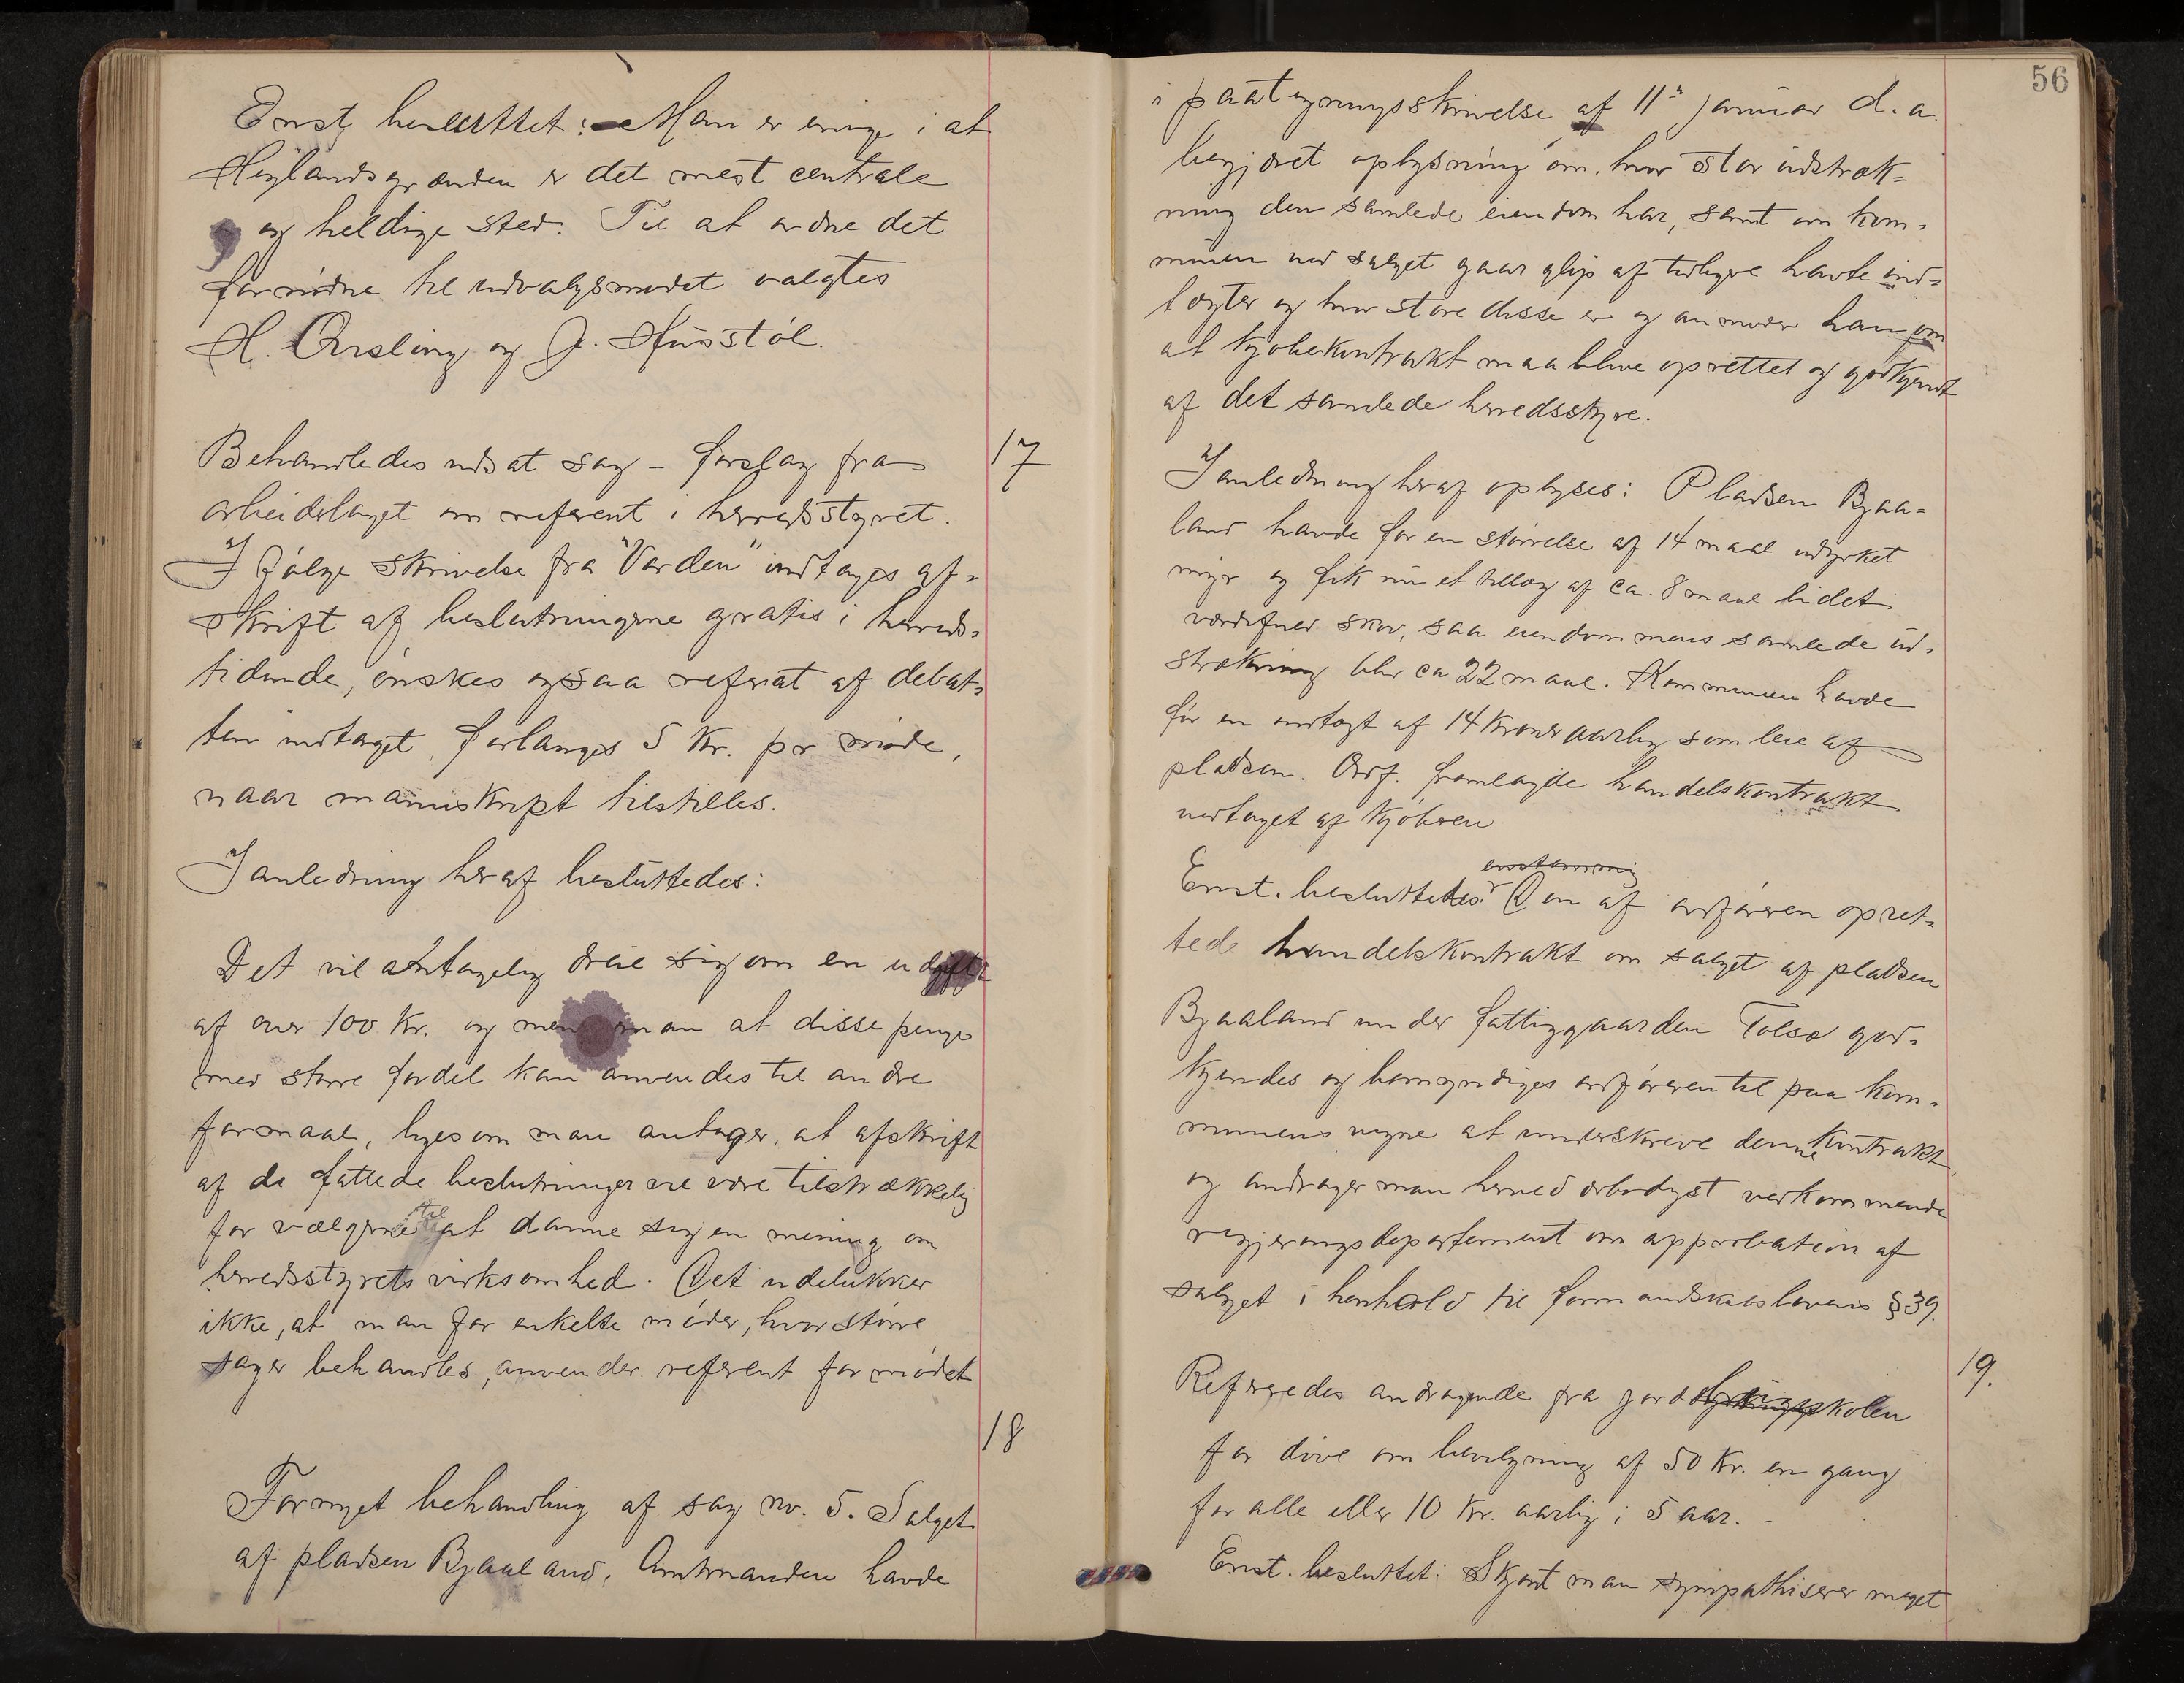 Enst, besluttet: Man er enige i at
Heylandsgrænden er det mest centrale
og heldige sted. Til at ordne det
fornødne til udvalgsmødet valgtes
H. Ørsling og J. Husstøl.
17
Behandledes udsat sag - forslag fra
arbeiderlaget om referent i herredsstyret.
I følge skrivelse fra "Varden" indtages af-
skrift af beslutningerne gratis i herreds-
tidende, ønskes ogsaa referat af debat-
ten indtaget, forlanges 5 Kr. pr møde,
naar manuskript tilstilles.
I anledning heraf besluttedes:
Det vil antagelig dreie sig om en udgift
af over 100 Kr. og mener man at disse penge
med større fordel kan anvendes til andre
formaal, ligesom man antager, at afskrift
af de fattede beslutninger vil være tilstrækkelig
for vælgerne til at danne sig en mening om
herredsstyrets virksomhed. Det udelukker
ikke, at man for enkelte møder, hvor større
sager behandles, anvender referent for mødet
18
Fornyet behandling af sag no. 5. Salget
af pladsen Bjaaland. Amtmanden havde
56
i paategningsskrivelse af 11te januar d. a.
begjæret oplysning om, hvor stor udstræk-
ning den samlede eiendom har, samt om kom-
munen ved salget gaar glip af tidligere havte ind-
tægter og hvor store disse er og anmoder han om
at kjøbekontrakt maa blive oprettet og godkjendt
af det samlede herredsstyre.
I anledning heraf oplyses: Pladsen Bjaa-
land havde før en størrelse af 14 maal udyrket
myr og fik nu et tillæg af ca. 8 maal lidet
værdifuld skov, saa eiendommens samlede ud-
strækning blir ca 22 maal. Kommunen havde
før en indtægt af 14 Kroner aarlig som leie af
pladsen. Ordf. fremlagde handelskontrakt
vedtaget af kjøberen
enstemmig
Enst. besluttedes: Den af ordføreren opret-
tede handelskontrakt om salget af pladsen
Bjaaland under fattiggaarden Tolsø god-
kjendes og bemyndiges ordføreren til paa kom-
munens vegne at underskrive denne kontrakt,
og andrager man herved ærbødigst vedkommende
regjeringsdepartement om approbation af
salget i henhold til formandskabslovens § 39.
19.
Refereredes andragende fra jord skolen
for døve om bevilgning af 50 Kr. en gang
for alle eller 10 Kr. aarlig i 5 aar. -
Enst. besluttet: Skjønt man sympathiserer meget